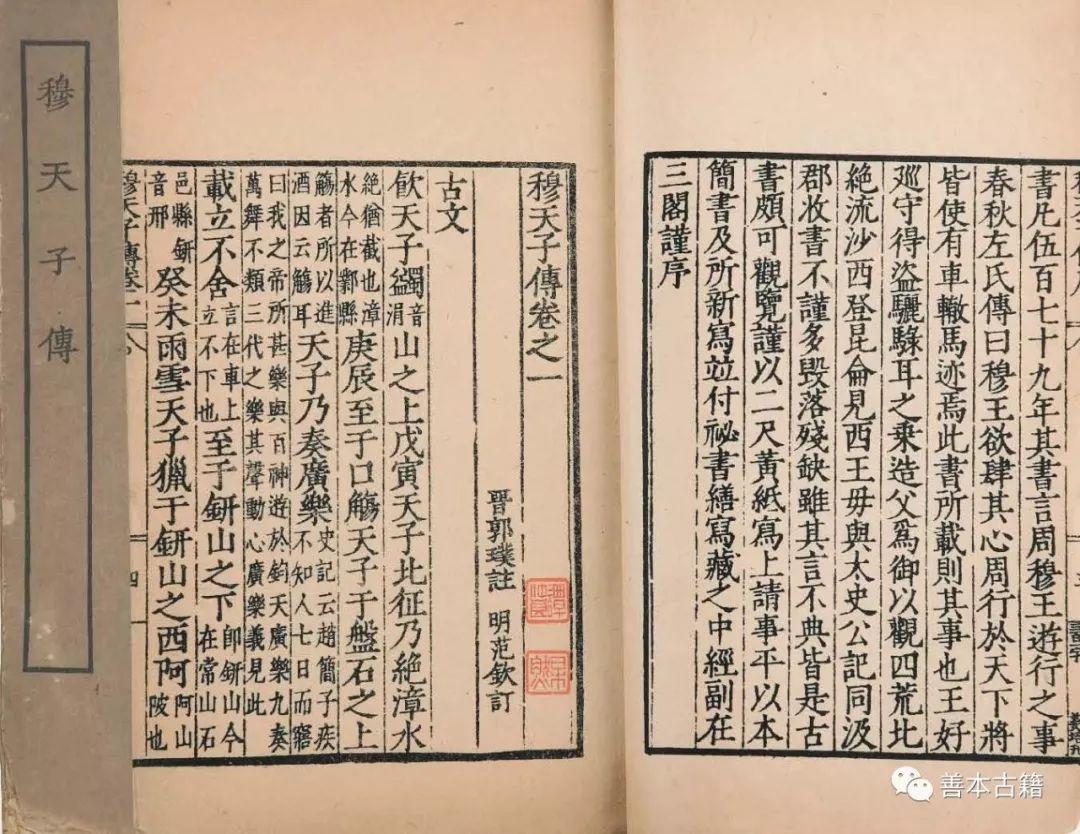 書凡伍百七十九年其書言周穆王遊行之事
春秋左氏傳曰穆王欲肆其心周行於天下將
皆使有車轍馬迹焉此書所載則其事也王好
廵守得盜驪騄耳之乗造父為御以觀四荒北
絶流沙西登昆侖見西王母與太史公記同汲
郡收書不謹多毀落殘缺雖其言不典皆是古
書頗可觀覽謹以二尺黃紙寫上請事平以本
簡書及所新寫並付祕書繕寫藏之中經副在
三閣謹序
穆天子傳卷之一
晉郭璞註 明范欽訂
古文
飲天子蠲音涓山之上戊寅天子北征乃絶漳水
絶猶截也漳水今在鄴縣庚辰至于口觴天子于盤石之上
觴者所以進酒因云觴耳天子乃奏廣樂史記云趙簡子疾不知人七日而寤
曰我之帝所甚樂與百神遊於鈞天廣樂九奏萬舞不類三代之樂其聲動心廣樂義見此
載立不舍言在車上立不下也至于鈃山之下即鈃山今在常山石
邑縣鈃音邢癸未雨雪天子獵于鈃山之西阿阿山陂也
穆天子傳卷一
四
穆天子傳
善本古籍